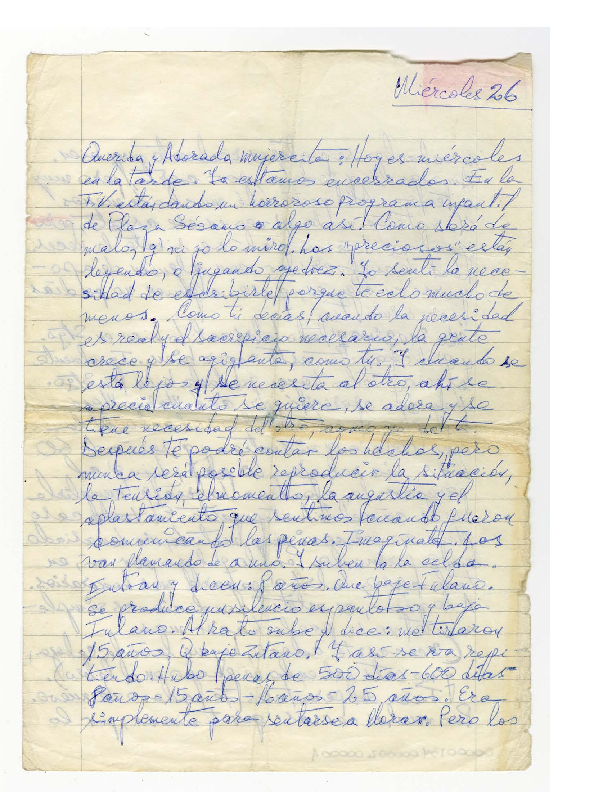 Miércoles 26
Querida y Adorada mujercita: Hoy es miércoles
en la tarde. Ya estamos encerrados. En la
T.V. están dando un horroroso programa infantil
de Plaza Sésamo o algo así. Como será de
malo, q' ni yo lo miro. Los "preciosos" están
leyendo, o jugando ajedrez. Yo sentí la nece-
sidad de escribirte porque te echo mucho de
menos. Como tú decías, cuando la necesidad
es real y el sacrificio necesario, la gente
crece y se agiganta, como tú. Y cuando se
está lejos y se necesita al otro, ahí se
aprecia cuanto se quiere, se adora y se
tiene necesidad
Después te podré contar los hechos, pero
nunca será posible reproducir la situación,
la tensión, el momento, la angustia y el
aplastamiento que sentimos cuando fueron
comunicando las penas. Imagínate. Los
van llamando de a uno. Y suben a la celda.
Entran y dicen: 8 años. Que baje Fulano.
Se produce un silencio espantoso y baja
Fulano. Al rato sube y dice: me tiraron
15 años. Q' baje Zutano. Y así se iba repi-
tiendo. Hubo penas de 500 días - 600 días -
8 años - 15 años - 16 años - 25 años. Era
simplemente para sentarse a llorar. Pero los